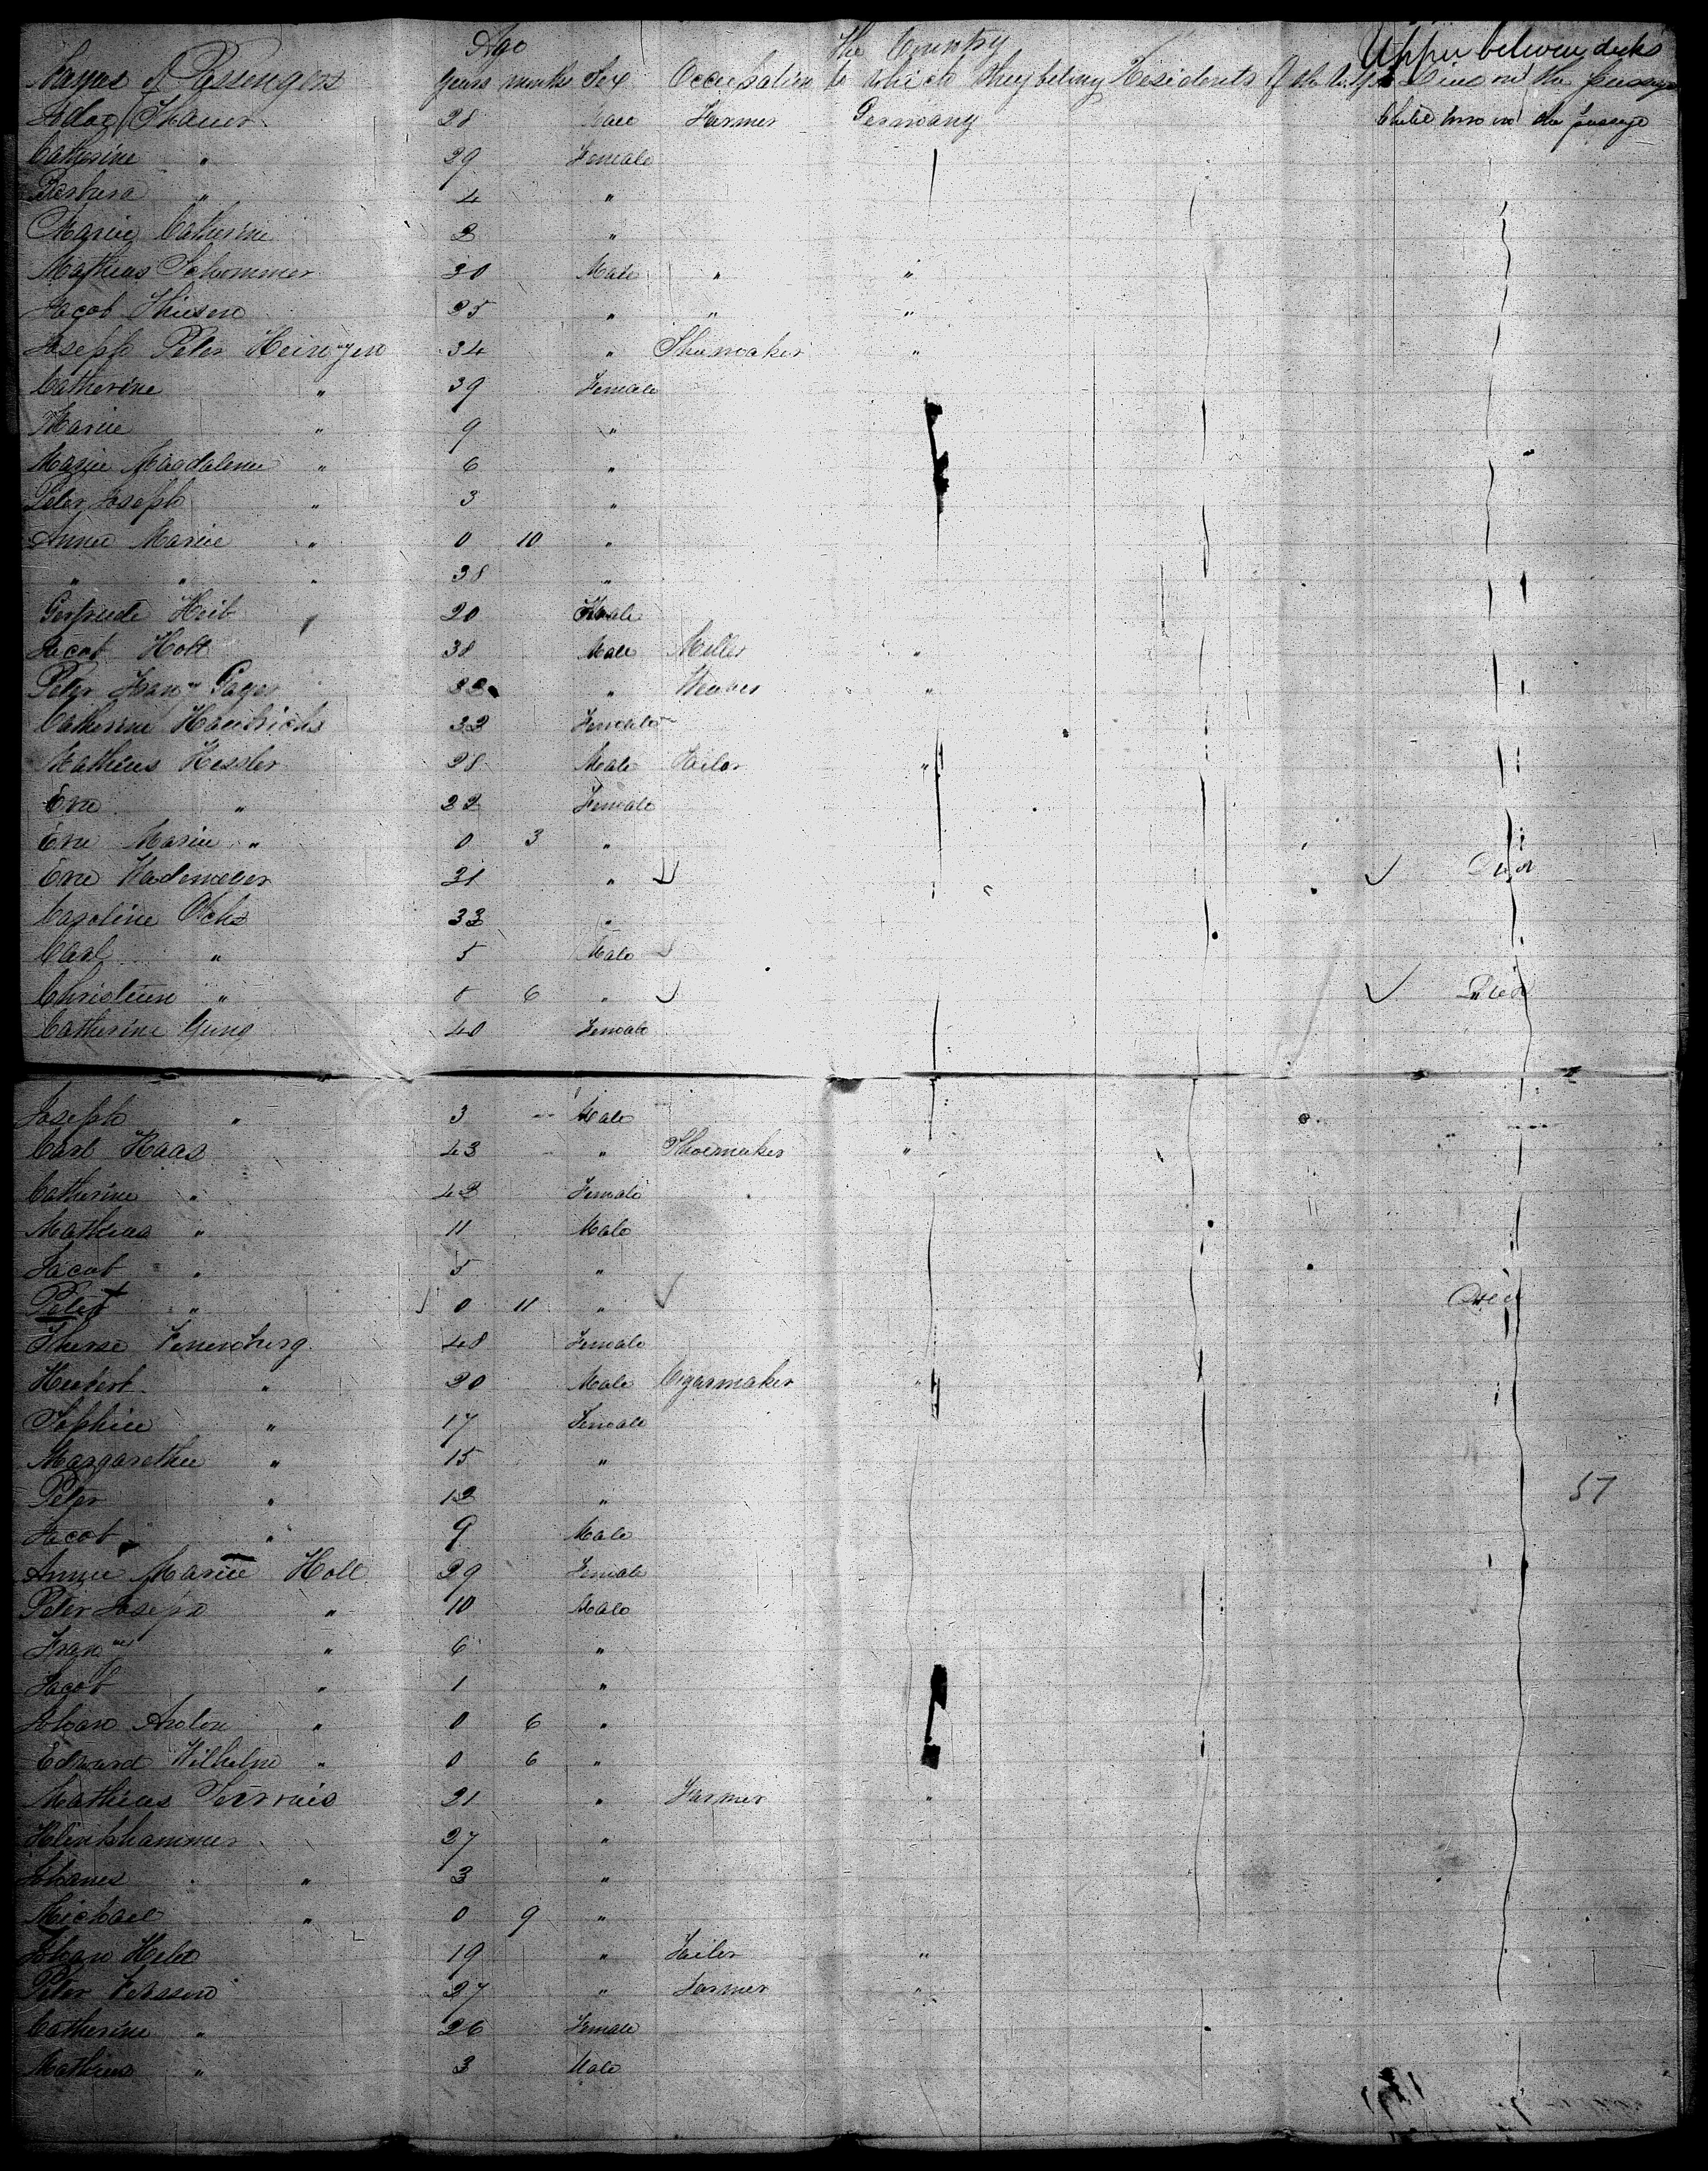 Upper between decks
Age The Country
Names of Passengers Years months Sex Occupation to which they belong Residents of the U.S. Died on the passage
Thauer 28 Male Farmer Germany Child born on the passage
Catherine " 29 Female
Barbara " 4 "
Marie Catherine 2 "
Mathias Schommer 20 Male " "
Jacob Thiesen 25 " " "
Joseph Peter 34 " Shoemaker "
Catherine " 39 Female
Marie " 9 "
Marie Magdalena " 6 "
Peter Joseph " 3 "
Anna Marie " 0 10 "
" " " 38 "
Gertrude 20 Female
Jacob Holl 38 Male Miller "
Peter " Weaver "
Catherine 32 Female
Mathias Kessler 28 Male Tailor "
Eva " 22 Female
Eva Marie " 0 3 "
Eva 21 " Died
Caroline Ochs 33 "
Carl " 5 Male
Christian " 6 " Died
Catherine Jung 40 Female
Joseph " 3 Male
Carl Haas 43 " Shoemaker "
Catherine " 43 Female
Mathias " 11 Male
Jacob " 5 "
Peter " 0 11 " Died
Therese 48 Female
Hubert " 20 Male Cigarmaker "
Sophie " 17 Female
Margarethe " 15 "
Peter " 12 " 57
Jacob " 9 Male
Anna Marie Holl 29 Female
Peter Joseph " 10 Male
Franz " 6 "
Jacob " 1 "
Johan Anton " 0 6 "
Edward Wilhelm " 0 6 "
Mathias Servais 21 " Farmer "
Klinkhammer 27 "
Johanes " 3 "
Michael " 0 9 "
Johan 19 " Tailor "
Peter 27 " Farmer "
Catherine " 26 Female
Mathias " 3 Male